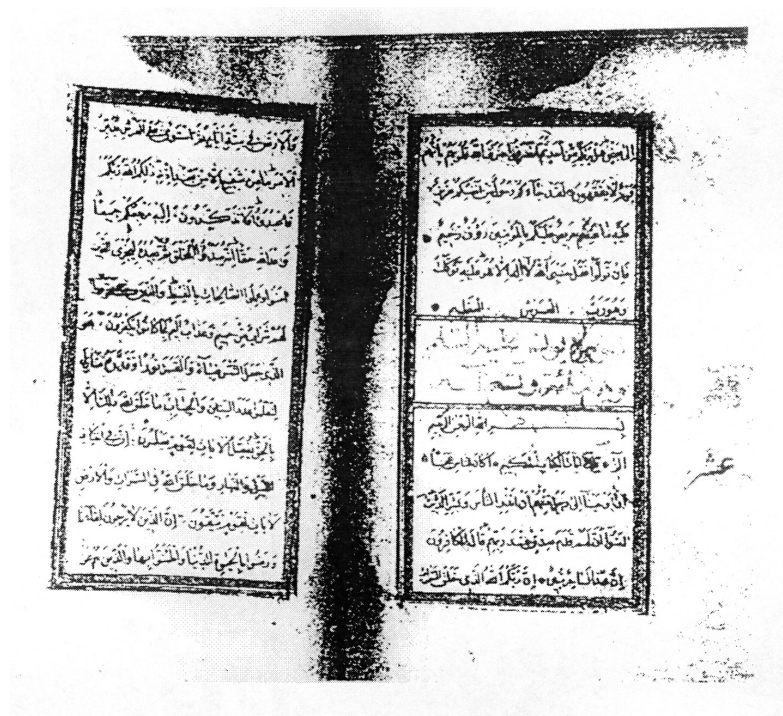 الى بعض هل يراكم من احد ثم انصرفوا صرف الله قلوبهم بانهم
قوم لا يفقهون لقد جاءكم رسول من انفسكم عزيز
عليه ما عنتم حريص عليكم بالمؤمنين رؤف رحيم
فان تولوا فقل حسبي الله لا اله الا هو عليه توكلت
وهو رب العرش العظيم
عليه السلام
بسم الله الرحمن الرحيم
الر تلك ايات الكتاب الحكيم اكان للناس عجبا
ان اوحينا الى رجل منهم ان انذر الناس وبشر الذين
امنوا ان لهم قدم صدق عند ربهم قال الكافرون
ان هذا لساحر مبين ان ربكم الله الذي خلق السموات
عشر
والارض في ستة ايام ثم استوى على العرش يدبر
الامر ما من شفيع الا من بعد اذنه ذلكم الله ربكم
فاعبدوه افلا تذكرون اليه مرجعكم جميعا
وعد الله حقا انه يبدؤا الخلق ثم يعيده ليجزي الذين
امنوا وعملوا الصالحات بالقسط والذين كفروا
لهم شراب من حميم وعذاب اليم بما كانوا يكفرون هو
الذي جعل الشمس ضياء والقمر نورا وقدره منازل
لتعلموا عدد السنين والحساب ما خلق الله ذلك الا
بالحق يفصل الايات لقوم يعلمون ان في اختلاف
الليل والنهار وما خلق الله في السموات والارض
لايات لقوم يتقون ان الذين لا يرجون لقاءنا
ورضوا بالحيوة الدنيا واطمأنوا بها والذين هم عن